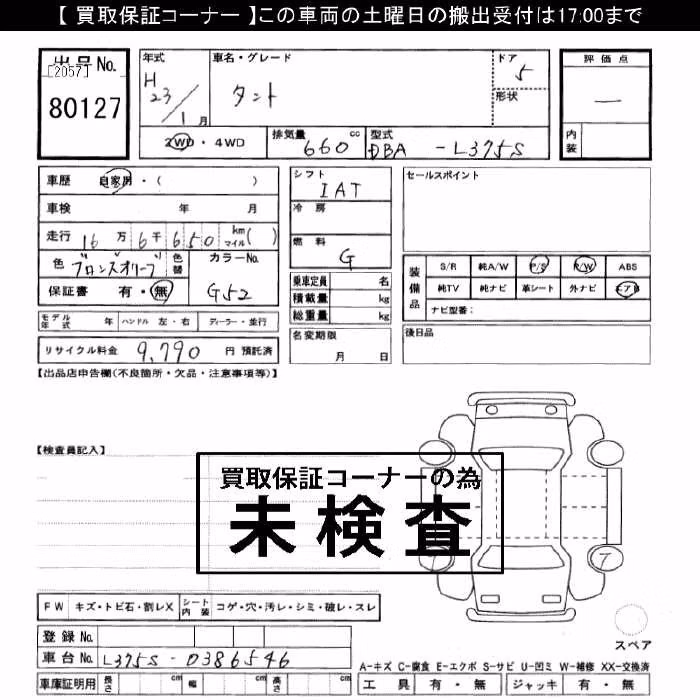 【 買取保証コーナー 】この車両の土曜日の搬出受付は17:00まで
出品No.
[2057]
80127
年式
H 23/1 月
車名・グレード
タント
ドア
5
形状
評価点
—
内装
2WD・4WD
排気量
660 cc
型式
DBA -L375S
車歴 自家用・( )
車検 年 月
走行 16万6千650 km マイル( )
色 ブロンズオリーブ 色替
カラーNo.
G52
保証書 有・無
モデル年式 年 ハンドル 左・右 ディーラー・並行
リサイクル料金 9,790 円 預託済
シフト
IAT
冷房
燃料
G
乗車定員 名
積載量 kg
総重量 kg
名変期限
月 日
セールスポイント
装備品
S/R 純A/W P/S P/W ABS
純TV 純ナビ 革シート 外ナビ エアB
ナビ型番:
後日品
【出品店申告欄(不良箇所・欠品・注意事項等)】
【検査員記入】
買取保証コーナーの為
未検査
7
スペア
FW キズ・トビ石・割レX シート内装 コゲ・穴・汚レ・シミ・破レ・スレ
登録No.
車台No. L375S-0386546
車庫証明用 長さ cm 幅 cm 高さ cm
A-キズ C-腐食 E-エクボ S-サビ U-凹ミ W-補修 XX-交換済
工具 有・無 ジャッキ 有・無